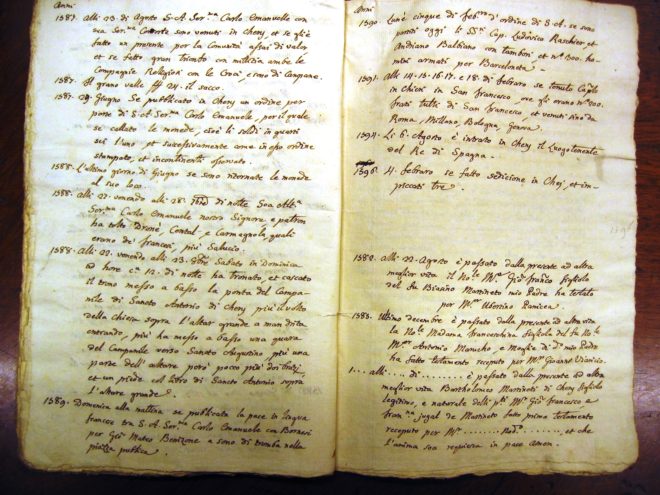 Anni
1587. Alli 23. di Agosto S. A. Ser.ma Carlo Emanuelle con
sua Ser.ma Corte sono venuti in Chery, et se gli è
fatto un presente per la Comunità assai di valor
et se fatto gran trionfo con millitia ambe le
Compagnie Religiosi con le Croci, e sono di Campane.
1587. Il grano valle ff 24. il sacco.
1587. 29 Giugno Se pubblicato in Chery un ordine per
parte di S. A. Ser.ma Carlo Emanuele, per il quale
se callato le monede, cioè li soldi in quarti
sei l'uno, et successivamente come in esso ordine
stampato, et incontinenti osservato.
1588. L'ultimo giorno di Giugno se sono ritornate le monede
al suo loco.
1588. Alli 27. venendo alli 28. di notte Sua Alt.a
Ser.ma Carlo Emanuele nostro Signore e patron
ha tolto Dronè, Cental, e Carmagnola, quali
erano de' francesi, più Saluzzo.
1588. Alli 22. venendo alli 23. Sabato in Dominica
ad hore c.a 12. di notte ha tronato, et cascato
il trono messo a basso la ponta del Campa-
nile di Sancto Antonio di Chery più il volto
della chiesa sopra l'altar grande a man drita
entrando, più ha messo a basso una quara
del Campanile verso Sancto Augustino più una
parte dell'altare però pocco più doi brazi,
et un piede del libro di Sancto Antonio sopra
l'altare grande.
1589. Domenica alla mattina se publicata la pace in lingua
francese tra S. A. Ser.ma Carlo Emanuelle con Bernesi
per Gio: Mateo Benizone a sono di tromba nella
piazza publica.
Anni
1590. Lunè cinque di feb.ro d'ordine di S. A. se sono
partiti oggi li SS.ri Cap. Ludovico Raschier, et
Andriano Balbiano con tamboni et n.o 100. ho-
mini armati per Barcelonta.
1591. Alli 14. 15. 16. 17. e 18. di febraro se tenuto Cap.lo
in Chieri in San Francesco, ove gli erano n.o 200.
frati tutti di San Francesco, et venuti sino da
Roma, Millano, Bologna, Genova.
1594. Li 6. Agosto è intrato in Chery il Luogotenente
del Re di Spagna.
1596. 4. febraro se fatto sedicione in Cheri, et im-
piccati tre.
1582. Alli 22. Agosto è passato dalla presente ad altra
meglior vita il No.le M.r Gio: franco figliolo
del fu Biasino Martineto mio Padre ha testato
per M.r Ubertino Panizza
1583. Ultimo decembre è passato dalla presente ad altra vita
la No.le Madama Franceschina figliola del fu No.le
M.r Antonio Manucho e Moglie di D.o mio Padre
ha fatto testamento receputo per M.r Gioanni
1... alli ... di ...... è passato dalla presente ad altra
meglior vita Bartholomeo Martineti di Chery figliolo
legitimo, e naturale dell' M.r Gio: francesco e
fran.na jugal de Martineto fatto primo testamento
receputo per M.r ......... Nod.o ......, et che
l'anima sua requiesca in pace amen.